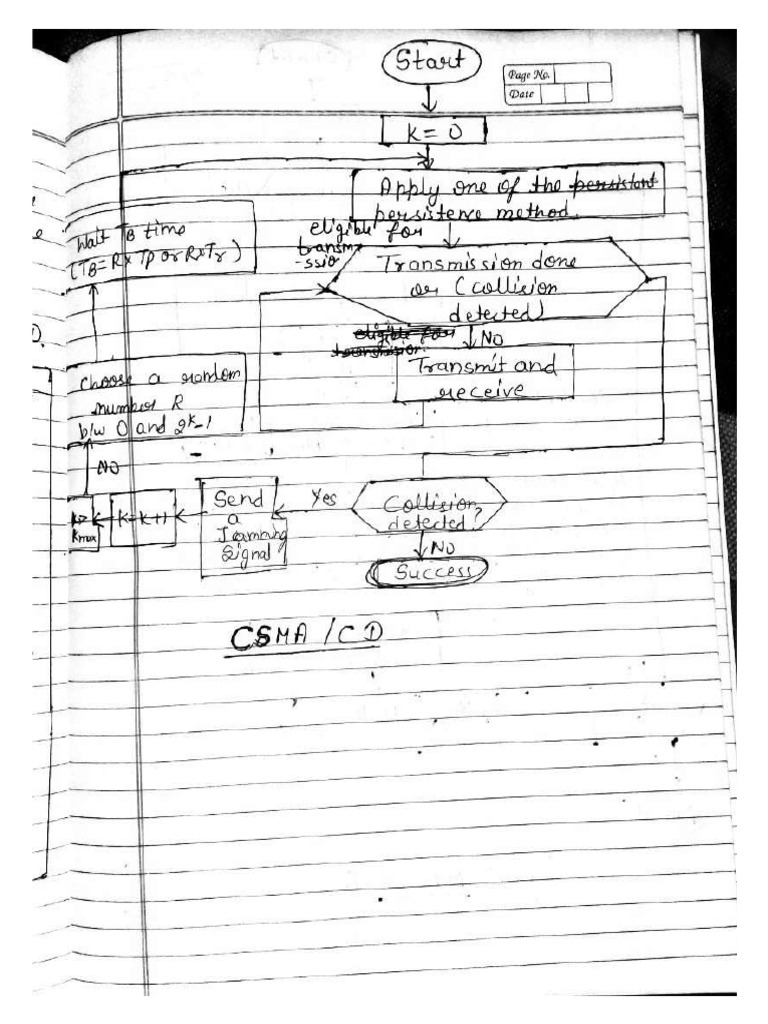 Start
Page No.
Date
K = 0
Apply one of the persistant
persistence method.
eligible for
transmi
-ssion
Transmission done
or (collision
detected)
Wait TB time
(TB = R x Tp or R x Tr)
eligible for
transmission.
NO
Transmit and
receive
choose a random
number R
b/w 0 and 2^k-1
NO
K>
Kmax
K = K+1
Send
a
Jamming
Signal
Yes
Collision
detected?
NO
Success
CSMA / CD